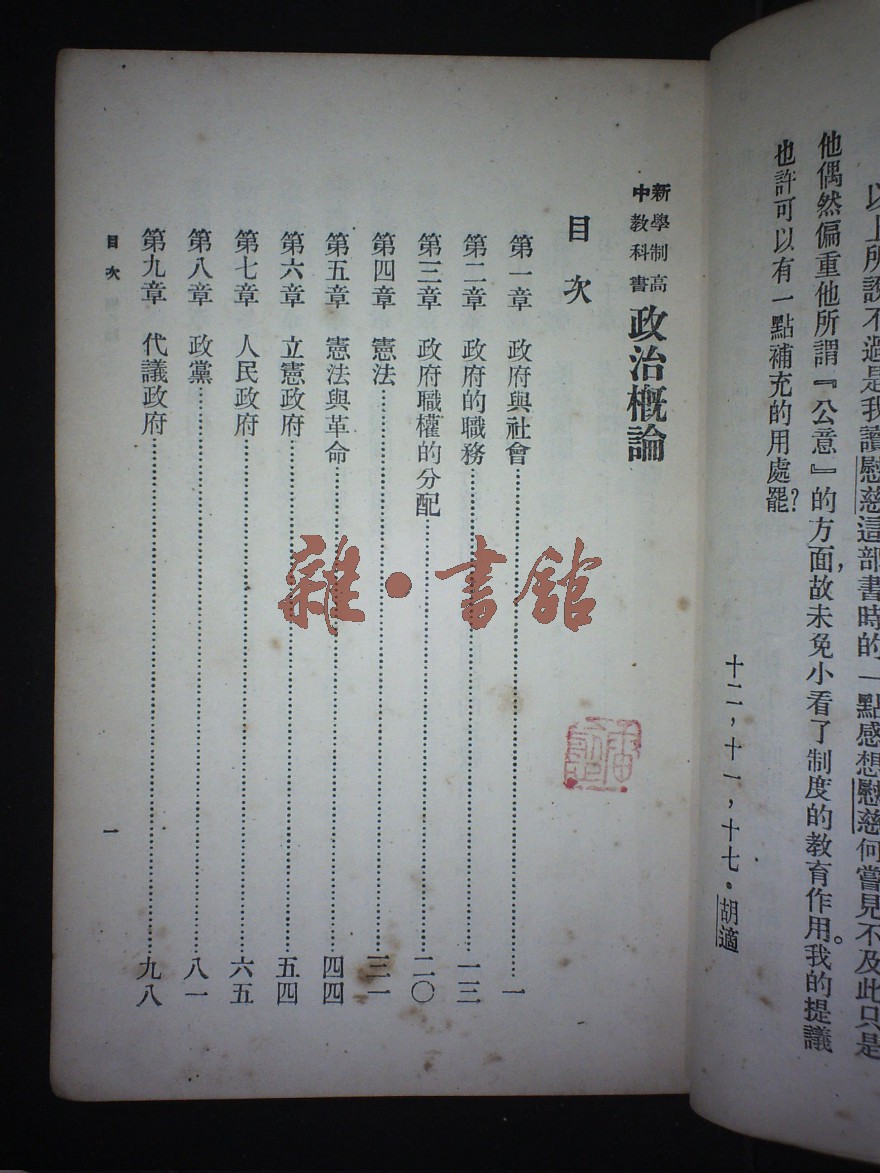 以上所說不過是我讀慰慈這部書時的一點感想慰慈何嘗見不及此只是
他偶然偏重他所謂『公意』的方面，故未免小看了制度的教育作用。我的提議
也許可以有一點補充的用處罷？
十二，十一，十七・胡適
新學制高
中教科書
政治概論
目次
第一章　政府與社會……一
第二章　政府的職務……一三
第三章　政府職權的分配……二〇
第四章　憲法……三一
第五章　憲法與革命……四四
第六章　立憲政府……五四
第七章　人民政府……六五
第八章　政黨……八一
第九章　代議政府……九八
目次
一
雜・書館